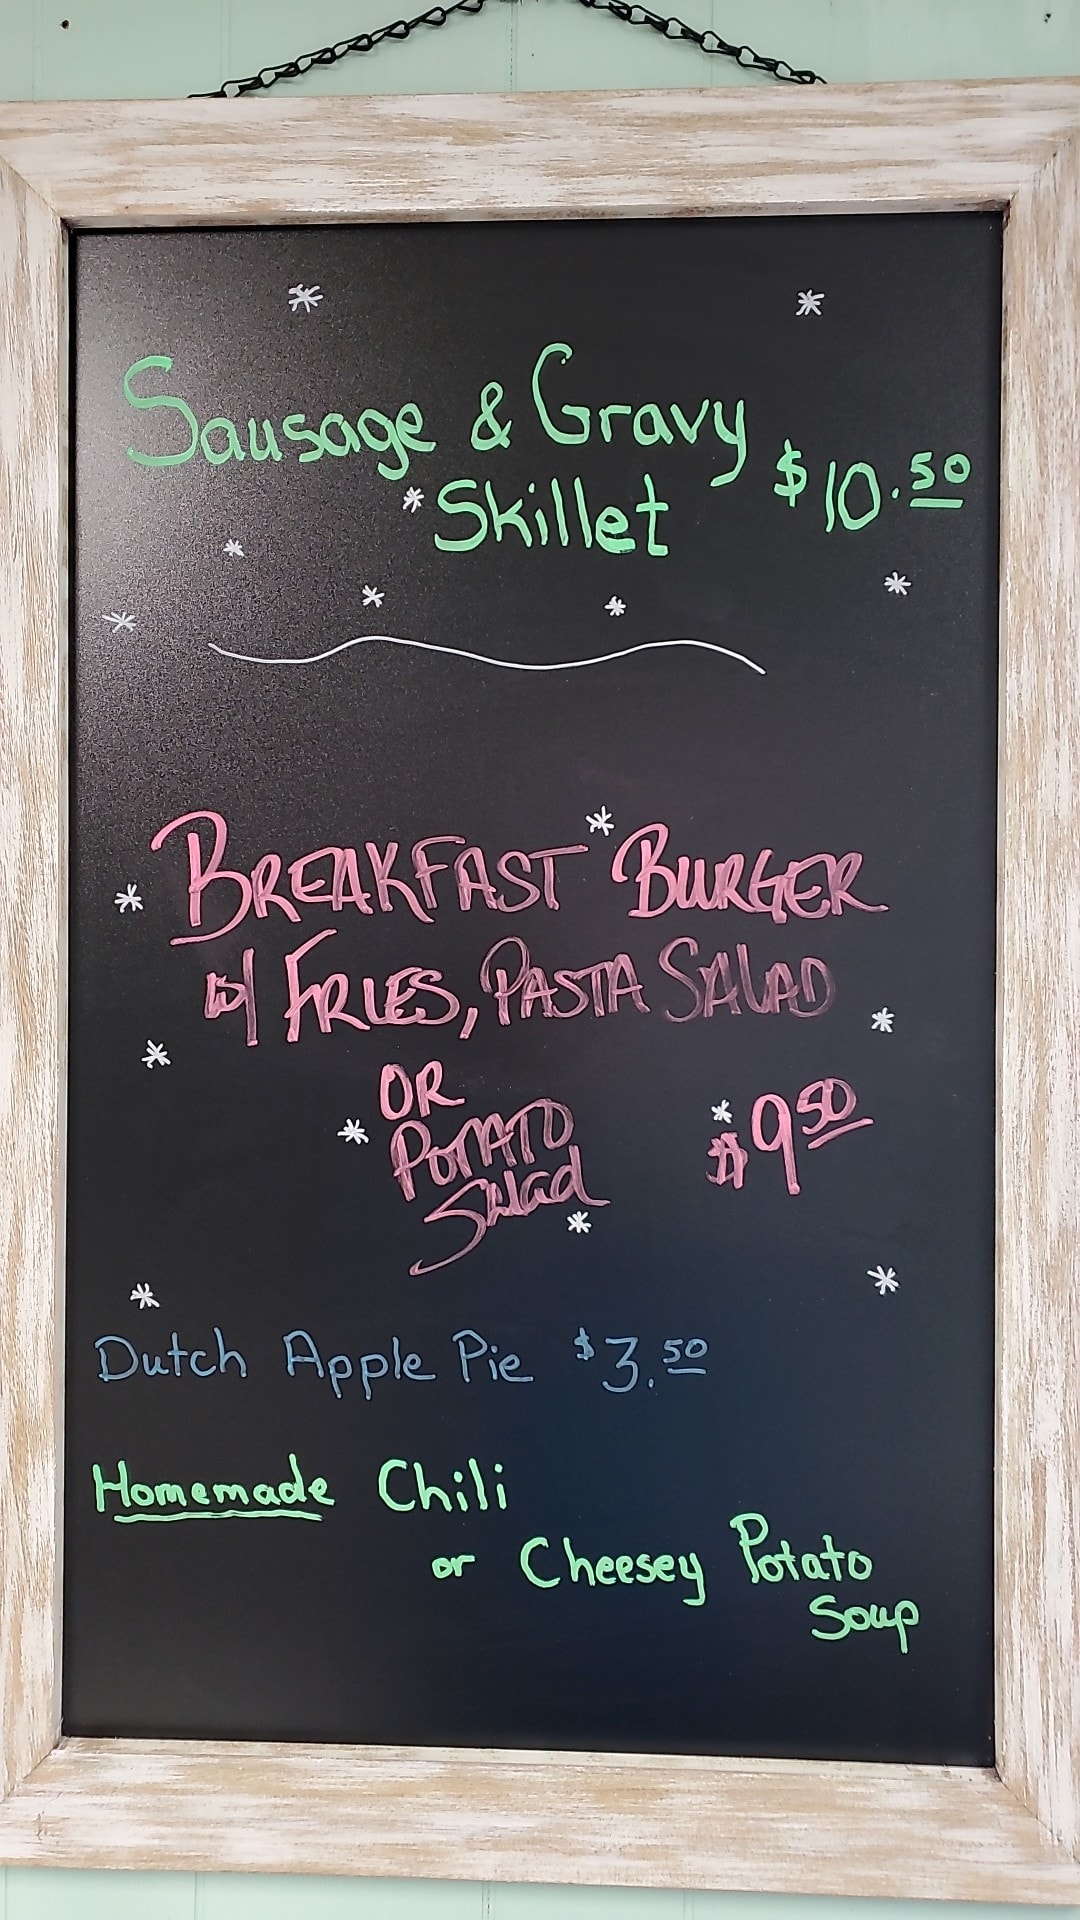 Sausage & Gravy
Skillet $10.50
BREAKFAST BURGER
w/ FRIES, PASTA SALAD
OR
POTATO
Salad $9.50
Dutch Apple Pie $3.50
Homemade Chili
or Cheesey Potato
Soup